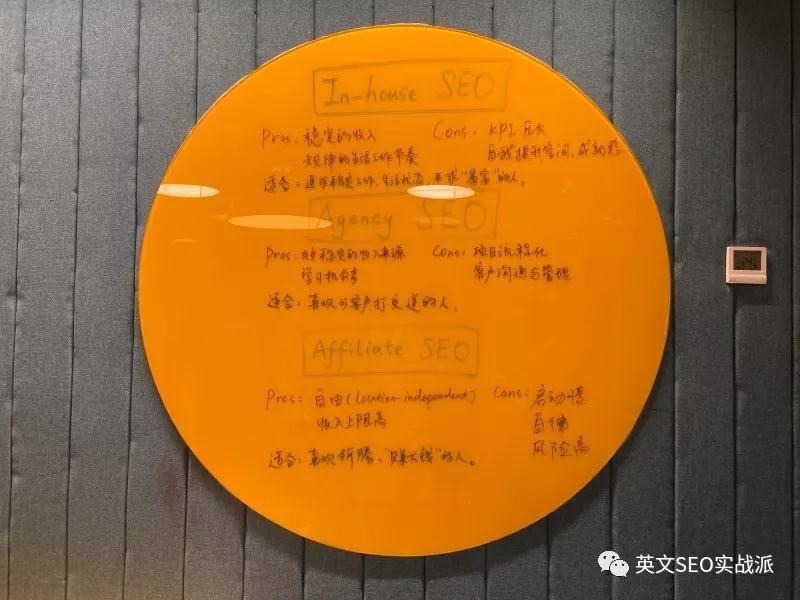 In-house SEO
Pros: 稳定的收入 Cons: KPI 压大
规律的生活工作节奏 自我提升空间、成就感
适合: 追求稳定工作、生活状态、不求"暴富"的人。
Agency SEO
Pros: 较稳定的收入来源 Cons: 项目流程化
学习机会多 客户沟通与管理
适合: 喜欢与客户打交道的人。
Affiliate SEO
Pros: 自由(location-independent) Cons: 启动慢
收入上限高 自律
风险高
适合: 喜欢折腾、"赚大钱"的人。
英文SEO实战派